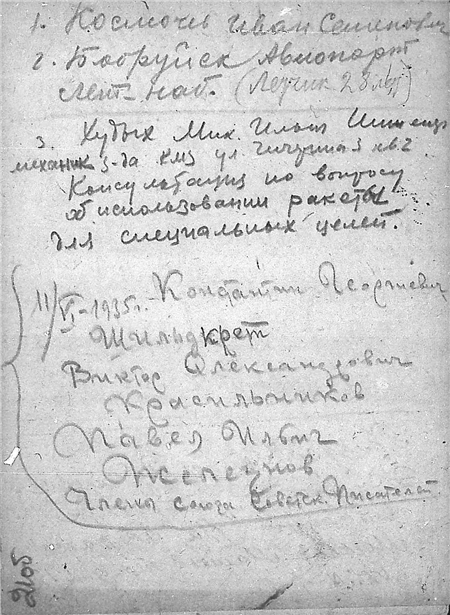 1. Космочь Иван Семенович
2. Бобруйск Авиопарк
Лет-наб. (Летчик
3. Худых Мих. Ильич
механик з-да кмз ул. кв 2
Консультация по вопросу
об использовании ракеты
для специальных целей.
11/VI-1935г. Константин Георгиевич
Шильдкрет
Виктор Александрович
Красильников
Павел Ильич
Члены союза Советск. Писателей
2106